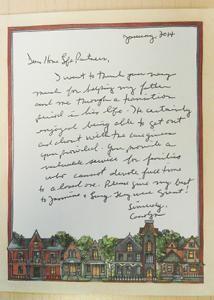 January, 2014
Dear Home Life Partners,
I want to thank you very
much for helping my father
and me through a transition
period in his life. He certainly
enjoyed being able to get out
and about with the caregivers
you provided. You provide a
valuable service for families
who cannot devote full time
to a loved one. Please give my best
to Jasmine & They were Great!
Sincerely,
Carolyn